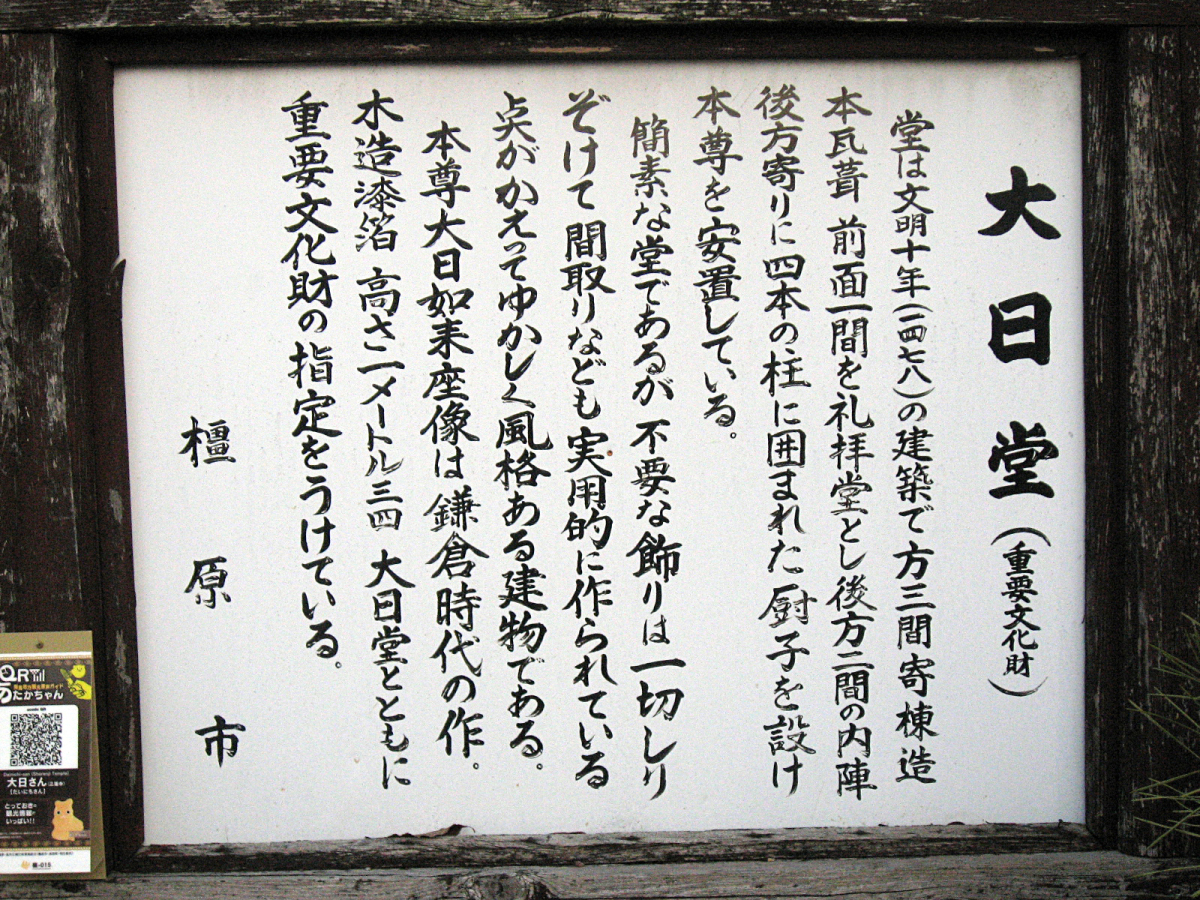 大日堂(重要文化財)
堂は文明十年(一四七八)の建築で方三間寄棟造
本瓦葺 前面一間を礼拝堂とし後方二間の内陣
後方寄りに四本の柱に囲まれた厨子を設け
本尊を安置している。
簡素な堂であるが 不要な飾りは一切しり
ぞけて 間取りなども実用的に作られている
点がかえってゆかしく風格ある建物である。
本尊大日如来座像は鎌倉時代の作。
木造漆箔 高さ一メートル三四 大日堂とともに
重要文化財の指定をうけている。
橿原市
QR
たかちゃん
大日さん
[だいにちさん]
とっておきの
観光情報が
いっぱい!!
橿-015